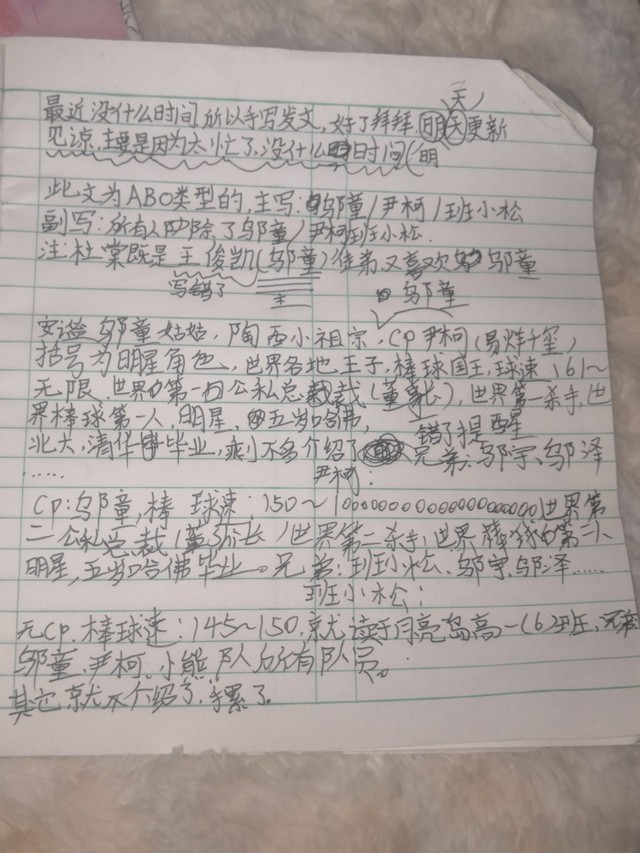 天
最近没什么时间所以手写发文,好了拜拜,明天更新
见谅,主要是因为太忙了,没什么时间(明
此文为ABO类型的,主写:邬童/尹柯/班小松
副写:所有人 除了邬童/尹柯班小松.
注:杜棠既是王俊凯(邬童)徒弟又喜欢 邬童
写错了 王 邬童
安谧邬童姑姑,陶西小祖宗,CP尹柯(易烊千玺)
括号为明星角色,世界各地王子,棒球国王,球速161~
无限.世界第一公私总裁(董事长),世界第一杀手,世
界棒球第一人,明星,五岁哈佛,
错了提醒
北大,清华毕业,剩不多介绍了 兄弟:邬宇、邬泽
……
尹柯:
CP:邬童,棒球速:150~1 世界第
二公私总裁(董事长)世界第二杀手,世界棒球第二人
明星,五岁哈佛毕业。兄弟:班小松、邬宇、邬泽……
班小松:
无CP.棒球速:145~150.就读于月亮岛高一(6)班,
邬童、尹柯、小熊队所有队员。
其它就不介绍了,手累了.